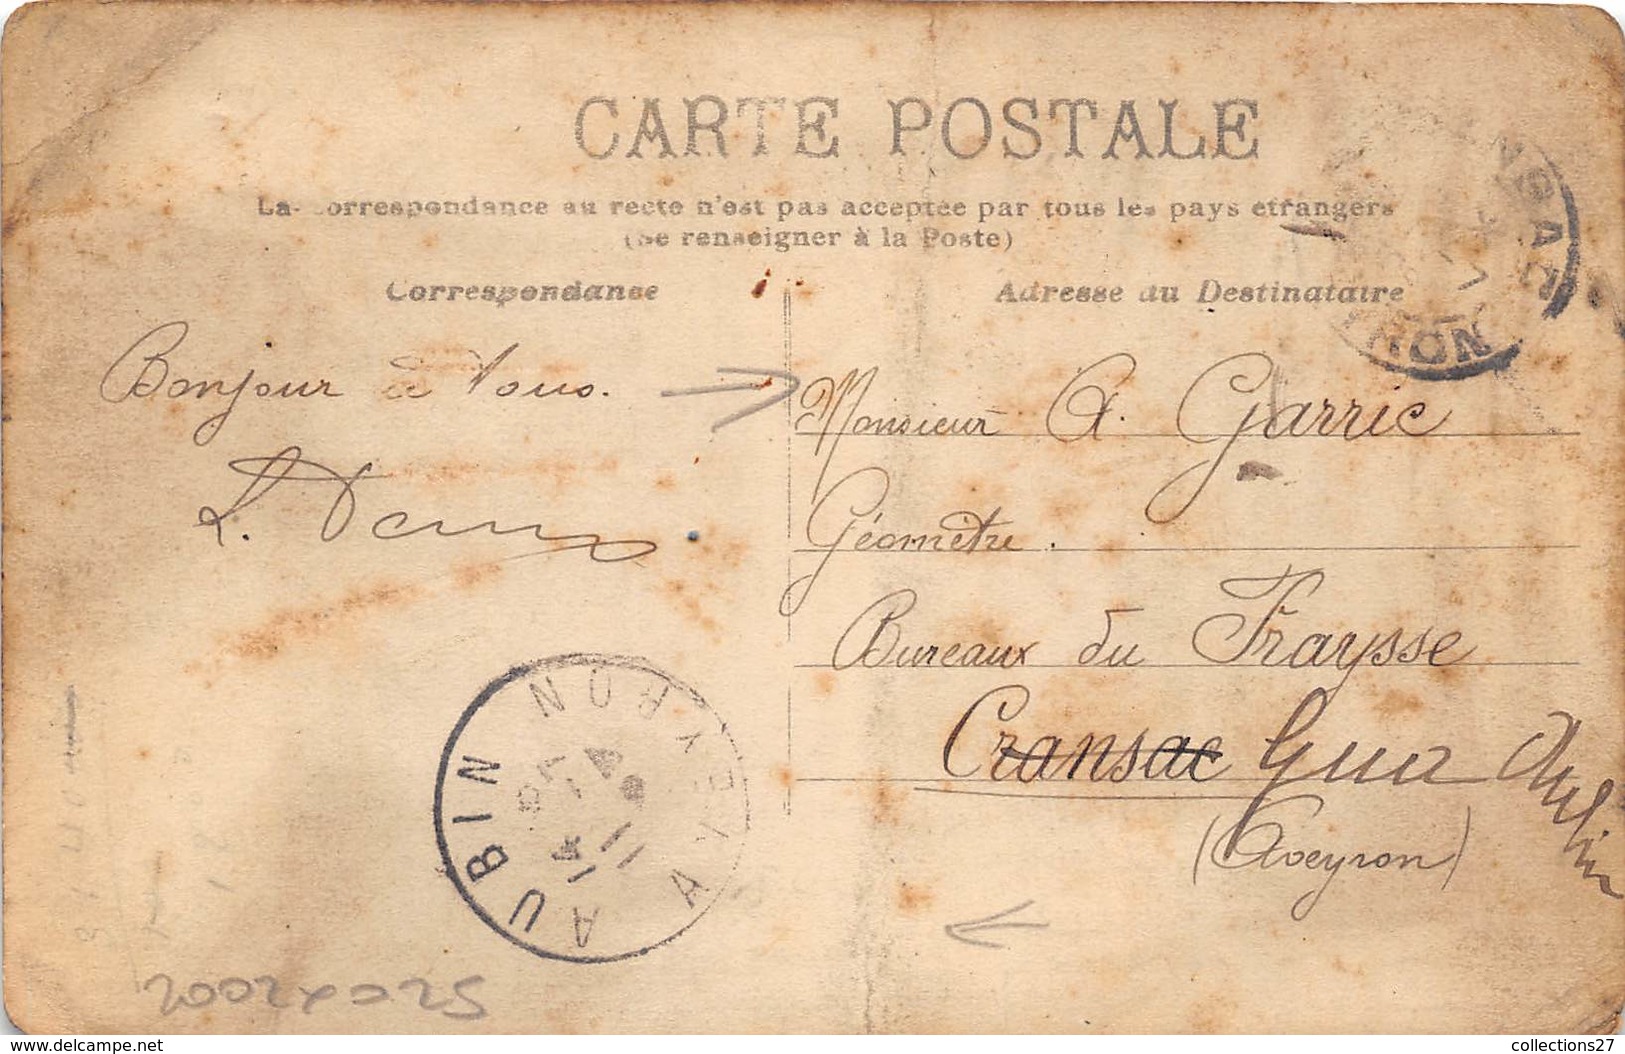 CARTE POSTALE
La correspondance au recto n'est pas acceptée par tous les pays étrangers
(Se renseigner à la Poste)
Correspondance
Adresse du Destinataire
Bonjour à tous.
L.
Monsieur A. Garric
Géomètre.
Bureaux du Fraysse
Cransac Gua Aubin
(Aveyron)
AUBIN
AVEYRON
14
11
delcampe.net
collections27